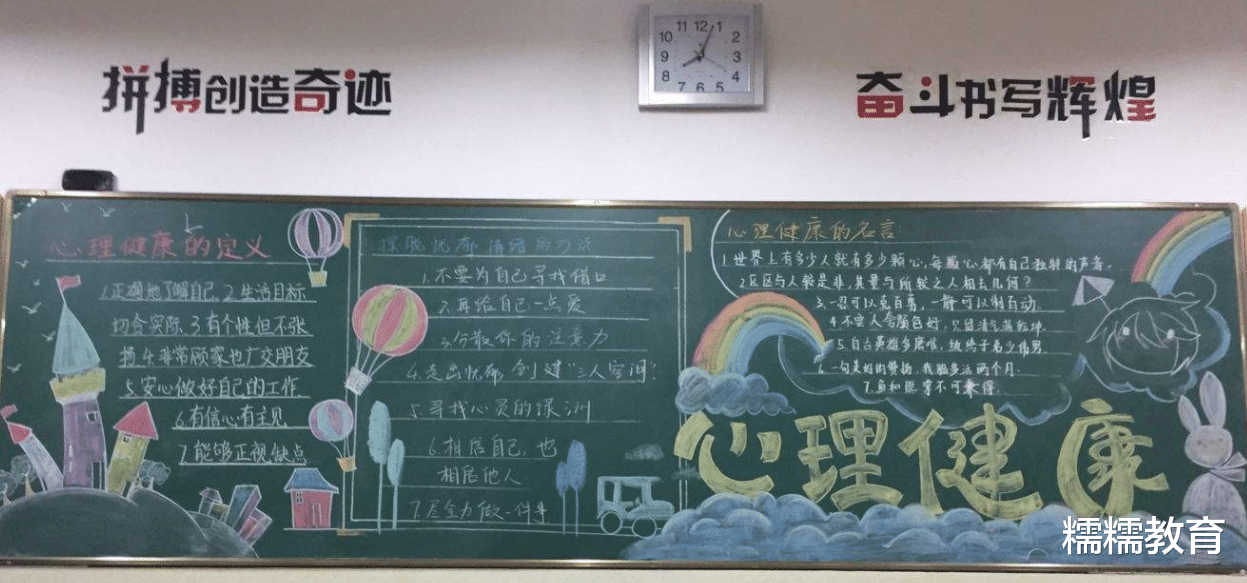 拼搏创造奇迹
11 12 1
10 2
9 3
8 4
7 6 5
奋斗书写辉煌
心理健康的定义
1.正确地了解自己 2.生活目标
切合实际 3有个性但不张
扬 4.非常顾家也广交朋友
5.安心做好自己的工作
6.有信心有主见
7.能够正视缺点
摆脱忧郁情绪的方法
1.不要为自己寻找借口
2.再给自己一点爱
3.分散你的注意力
4.走出忧郁 创建"三人空间"
5.寻找心灵的绿洲
6.相信自己，也
相信他人
7.尽全力做一件事
心理健康的名言:
1.世界上有多少人就有多少颗心，每颗心都有自己独特的声音。
2.区区与人较是非，其量与所较之人相去几何？
3.一忍可以支百勇，一静可以制百动。
4.不要人夸颜色好，只留清气满乾坤。
5.自古英雄多磨难，纨绔子弟少伟男。
6.一句美好的赞扬，我能多活两个月。
7.鱼和熊掌不可兼得。
心理健康
糯糯教育